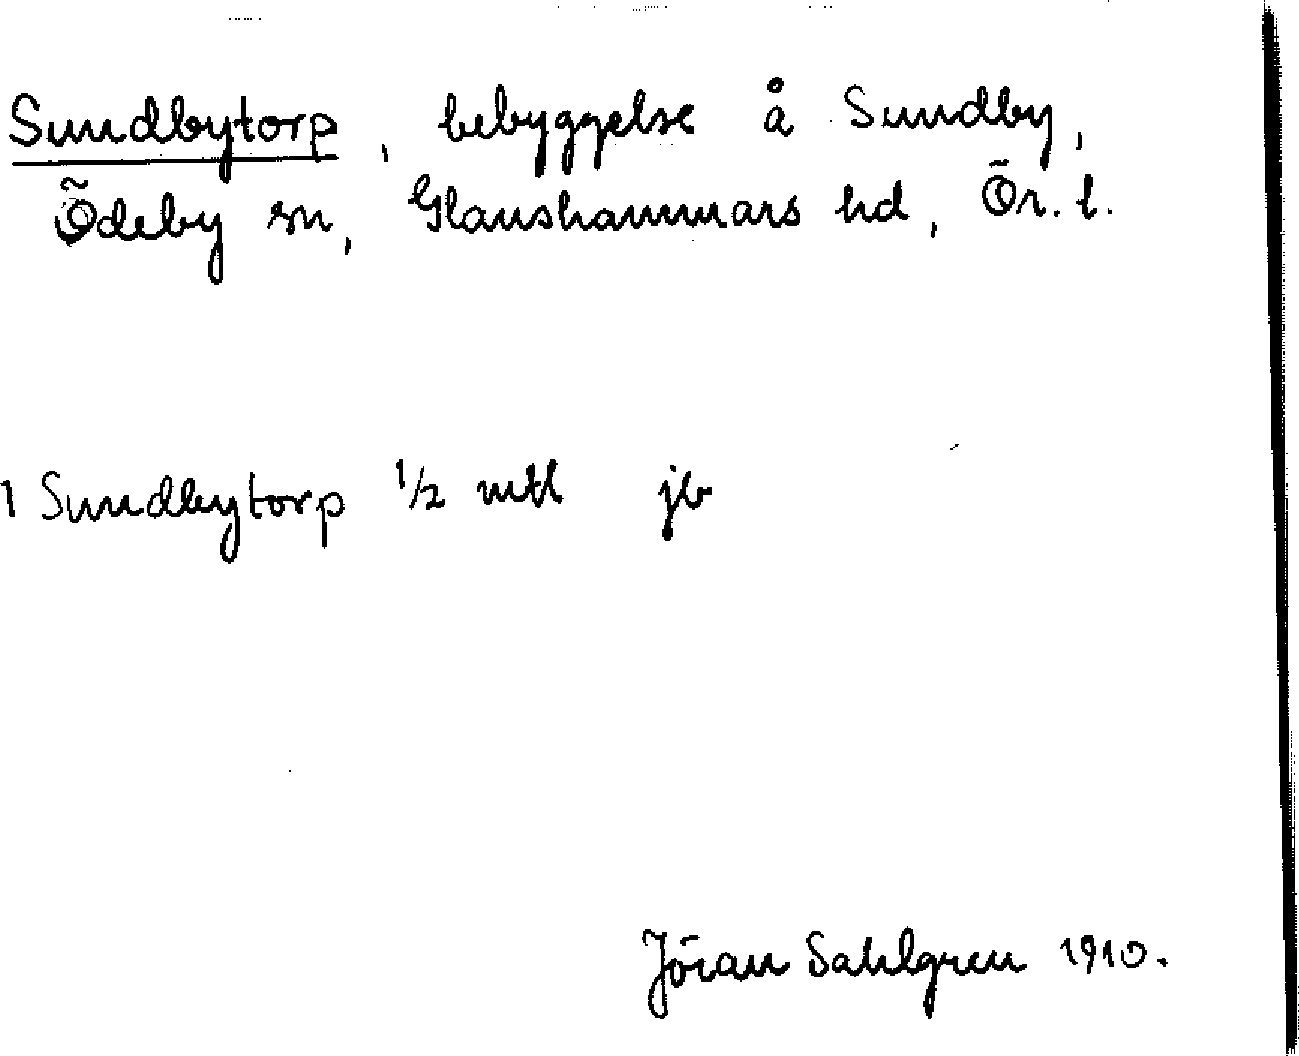 Sundbytorp, bebyggelse å Sundby,
Ödeby sn, Glanshammars hd, Ör. l.
1 Sundbytorp 1/2 mtl jb
Jöran Sahlgren 1910.